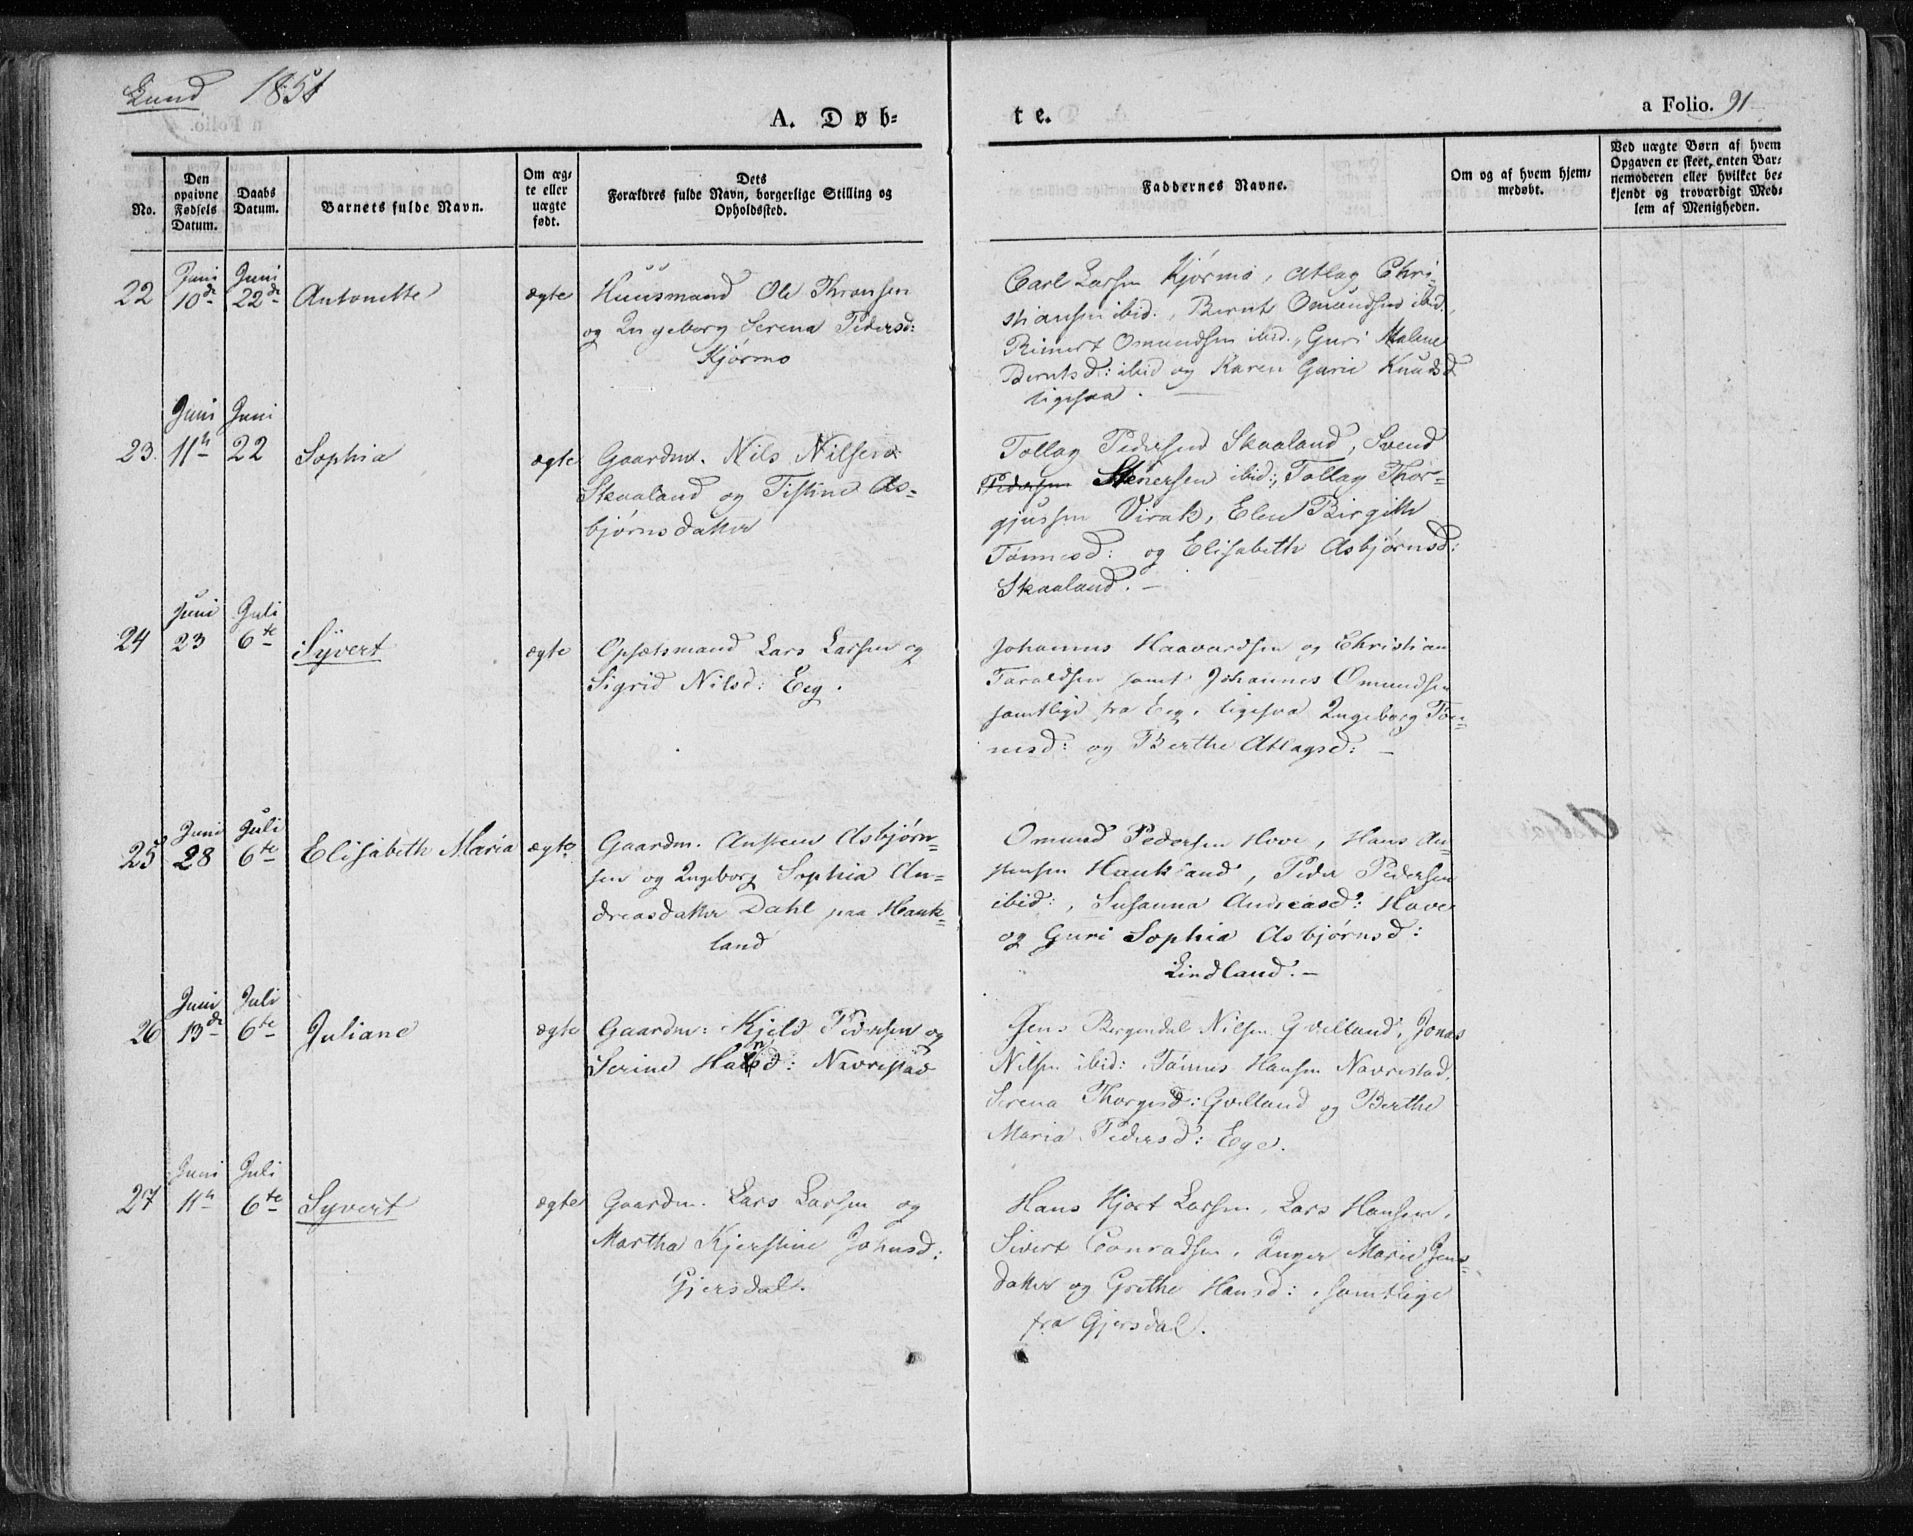 Lund 1851
A. Døb-
te.
a Folio. 91
No.
Den opgivne Fødsels Datum.
Daabs Datum.
Barnets fulde Navn.
Om ægte eller uægte født.
Dets
Forældres fulde Navn, borgerlige Stilling og
Opholdssted.
Faddernes Navne.
Om og af hvem hjemmedøbt.
Ved uægte Børn af hvem
Opgaven er skeet, enten Bar-
nemoderen eller hvilket be-
kjendt og troværdigt Med-
lem af Menigheden.
22 Juni 10de Juni 22de Antonette ægte
Huusmand Ole Thronsen
og Ingeborg Serena Pedersd:
Kjørmo
Carl Larsen Kjørmo, Atlag Chri-
stiansen ibid:, Bernt Omundsen ibid.,
Reinert Omundsen ibid., Guri Malene
Berntsd: ibid og Karen Gurie Knudsd
ligesaa.
23. Juni 11te Juni 22 Sophia ægte
Gaardm. Nils Nilsen
Skaaland og Tistine As-
bjørnsdatter
Tollag Pedersen Skaaland, Svend
Pedersen Stenersen ibid:, Tollag Thor-
gjussen Virak, Elen Birgitte
Tønnesd: og Elisabeth Asbjørnsd:
Skaaland. -
24 Juni 23 Juli 6te Syvert ægte
Opsætsmand Lars Larsen og
Sigrid Nilsd: Eeg.
Johannes Haavardsen og Christian
Taraldsen samt Johannes Omundsen
samtlige fra Eeg, ligesaa Ingeborg Tøn-
nesd: og Berthe Atlagsd: -
25 Juni 28 Juli 6te Elisabeth Maria ægte
Gaardm. Ansteen Asbjørn-
sen og Ingeborg Sophia An-
dreasdatter Dahl paa Hauk-
land
Omund Pedersen Hove, Hans An-
stensen Haukland, Peder Pedersen
ibid:, Susanna Andreasd: Hove
og Guri Sophia Asbjørnsd:
Lindland. -
26 Juni 13de Juli 6te Juliane ægte
Gaardm: Kjeld Pedersen og
Serine Hansd: Navrestad
Jens Bergendal Nilsen Gvelland, Jonas
Nilsen ibid: Tønnes Hansen Navrestad,
Serena Thorgesd: Gvelland og Berthe
Maria Pedersd: Ege.
27 Juni 11te Juli 6te Syvert ægte
Gaardm. Lars Larsen og
Martha Kjerstine Johnsd:
Gjersdal.
Hans Hjort Larsen, Lars Hansen,
Sivert Conradsen, Inger Marie Jens-
datter og Grethe Hansd: samtlige
fra Gjersdal.